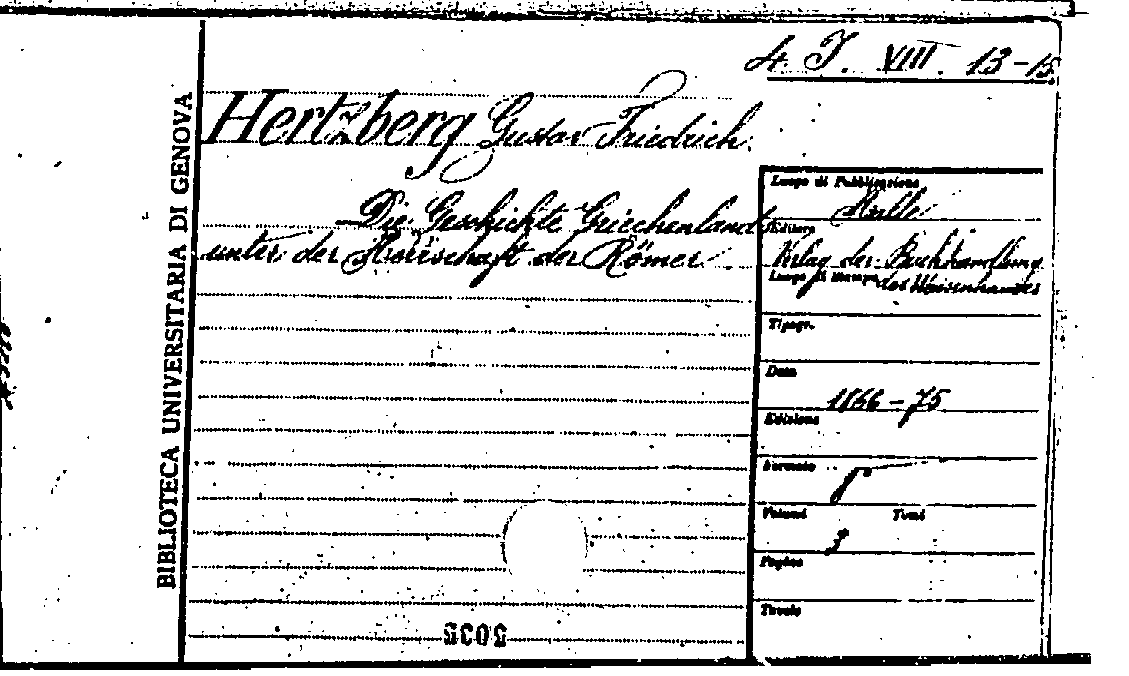 4. J. VIII. 13-15
BIBLIOTECA UNIVERSITARIA DI GENOVA
Hertzberg Gustav Friedrich.
Die Geschichte Griechenlands
unter der Herrschaft der Römer
Luogo di Pubblicazione
Halle
Editore
Verlag der Buchhandlung
Luogo di Stampa des Waisenhauses
Tipogr.
Data
1866-75
Edizione
Formato
8°
Volumi Tomi
3
Pagine
Tavole